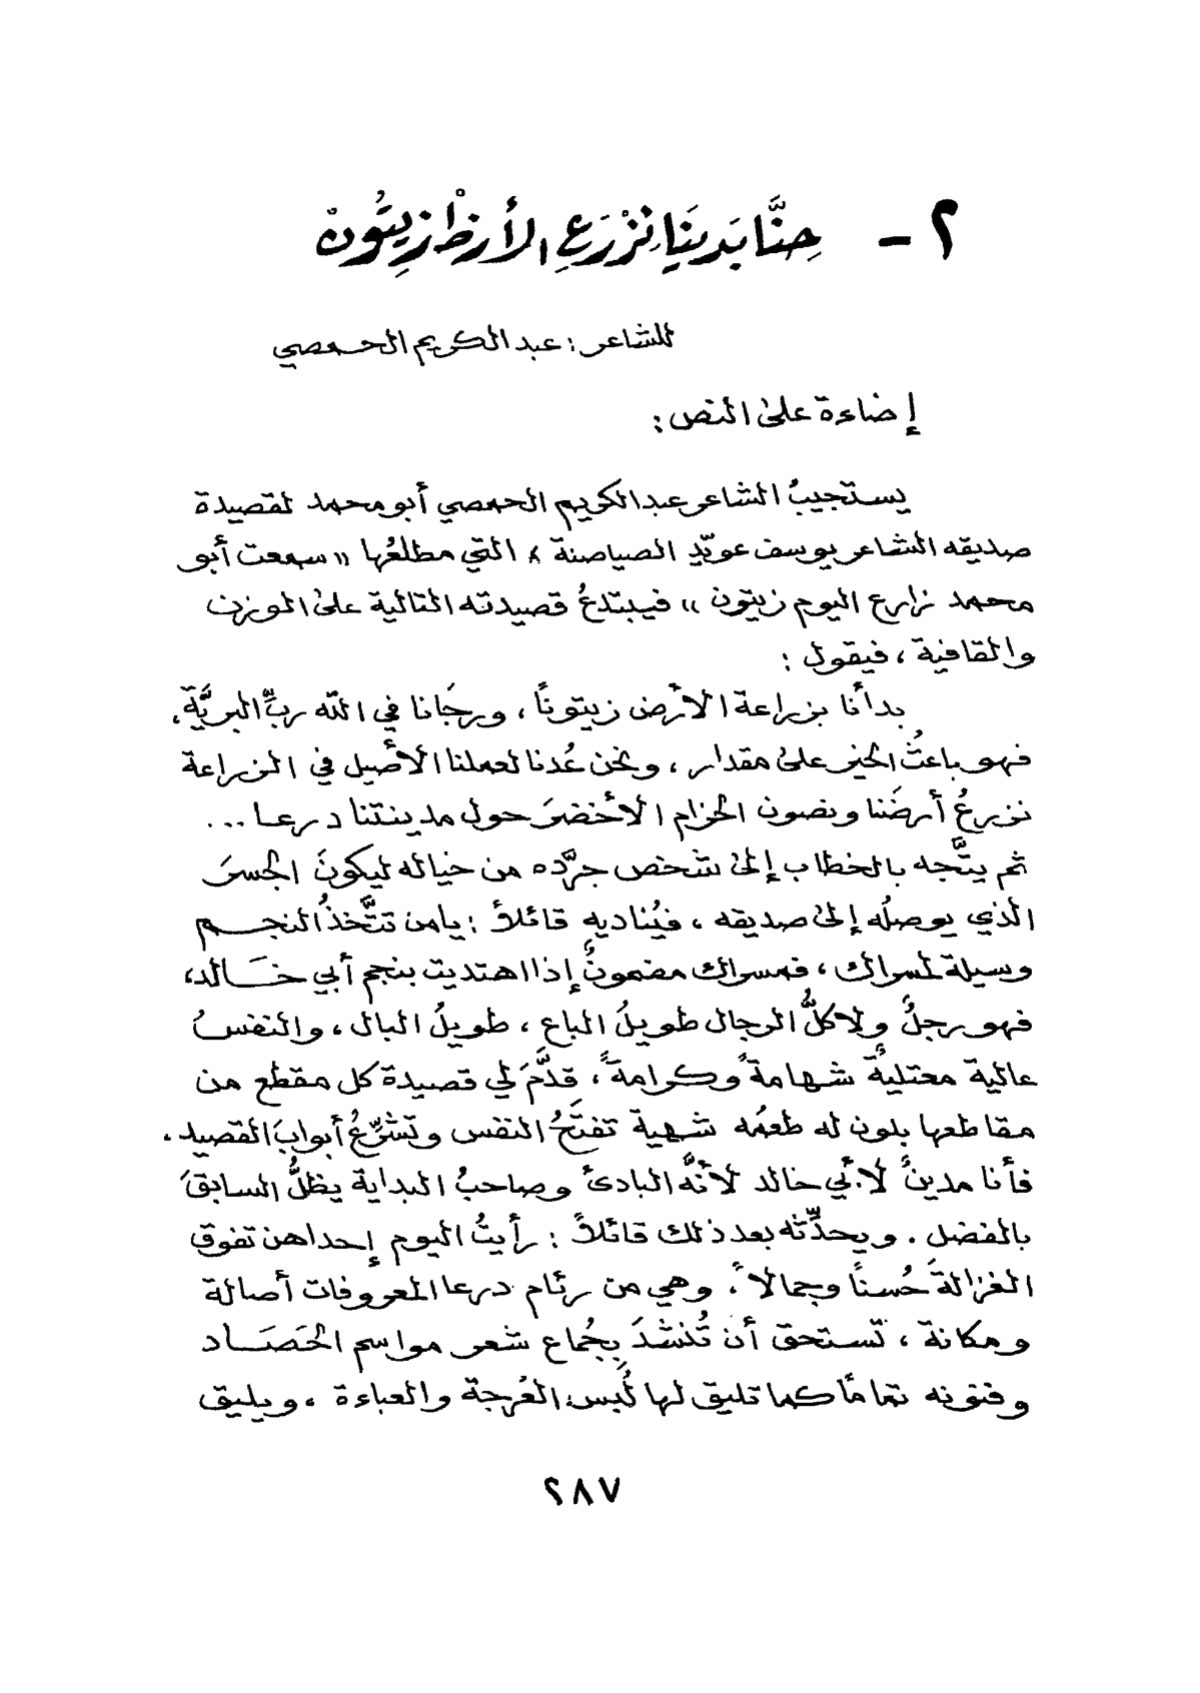 ٢ - حِنَّا بَدينَا نِزْرَعِ الأرظْ زِيتُونْ
للشاعر : عبد الكريم الحمصي
إضاءة على النص :
يستجيبُ الشاعر عبد الكريم الحمصي أبو محمد لقصيدة
صديقه الشاعر يوسف عويّدِ الصياصنة ، التي مطلعُها « سمعت أبو
محمد زارع اليوم زيتون » فيبتدعُ قصيدته التالية على الوزن
والقافية ، فيقول :
بدأنا بزراعة الأرض زيتونًا ، ورجَانا في الله ربِّ البريَّة ،
فهو باعثُ الخير على مقدار ، ونحن عُدنا لعملنا الأصيل في الزراعة
نزرعُ أرضَنا ونصون الحزام الأخضرَ حول مدينتنا درعا ...
ثم يتَّجه بالخطاب إلى شخص جرَّده من خياله ليكونَ الجسرَ
الذي يوصلُه إلى صديقه ، فيُناديه قائلاً : يا من تتَّخذُ النجم
وسيلة لمسراك ، فمسراك مضمونٌ إذا اهتديت بنجم أبي خالد ،
فهو رجلٌ ولا كلُّ الرجال طويلُ الباع ، طويلُ البال ، والنفسُ
عالية ممتليةٌ شهامةً وكرامةً ، قدَّمَ لي قصيدة كل مقطع من
مقاطعها بلون له طعمُه شهية تفتَحُ النفس وتشرِّعُ أبوابَ القصيد ،
فأنا مدينٌ لأبي خالد لأنَّه البادئ وصاحبُ البداية يظلُّ السابقَ
بالفضل . ويحدِّثه بعد ذلك قائلاً : رأيتُ اليوم إحداهن تفوق
الغزالةَ حُسناً وجمالاً ، وهي من رئام درعا المعروفات أصالة
ومكانة ، تستحق أن تُنشَدَ بِجُماع شعر مواسم الحَصَاد
وفنونه تمامًا كما تليق لها لُبس الفُرجة والعباءة ، ويليق
٢٨٧